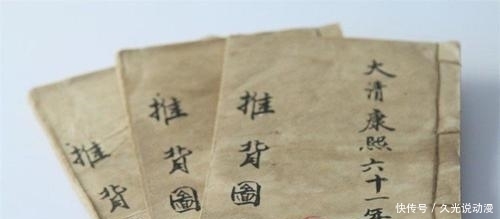 大清康熙六十一年
推背圖
推背圖
推背
快传号 / 久光说动漫